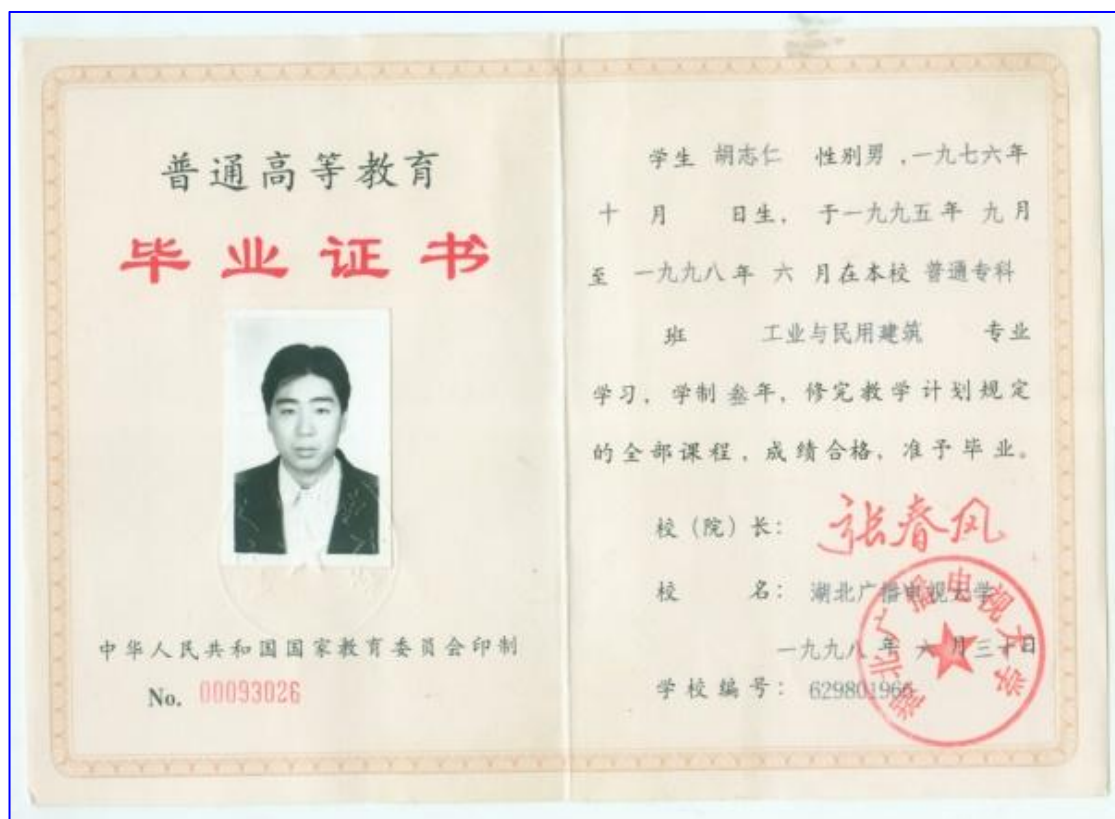 普通高等教育
毕业证书
中华人民共和国国家教育委员会印制
No. 00093026
学生 胡志仁 性别男,一九七六年
十 月 日生, 于一九九五年 九月
至 一九九八年 六 月在本校 普通专科
班 工业与民用建筑 专业
学习, 学制叁年, 修完教学计划规定
的全部课程, 成绩合格, 准予毕业。
校(院)长: 张春风
校 名: 湖北广播电视大学
一九九八 年 六 月三十日
学校编号: 629801966
湖北广播电视大学